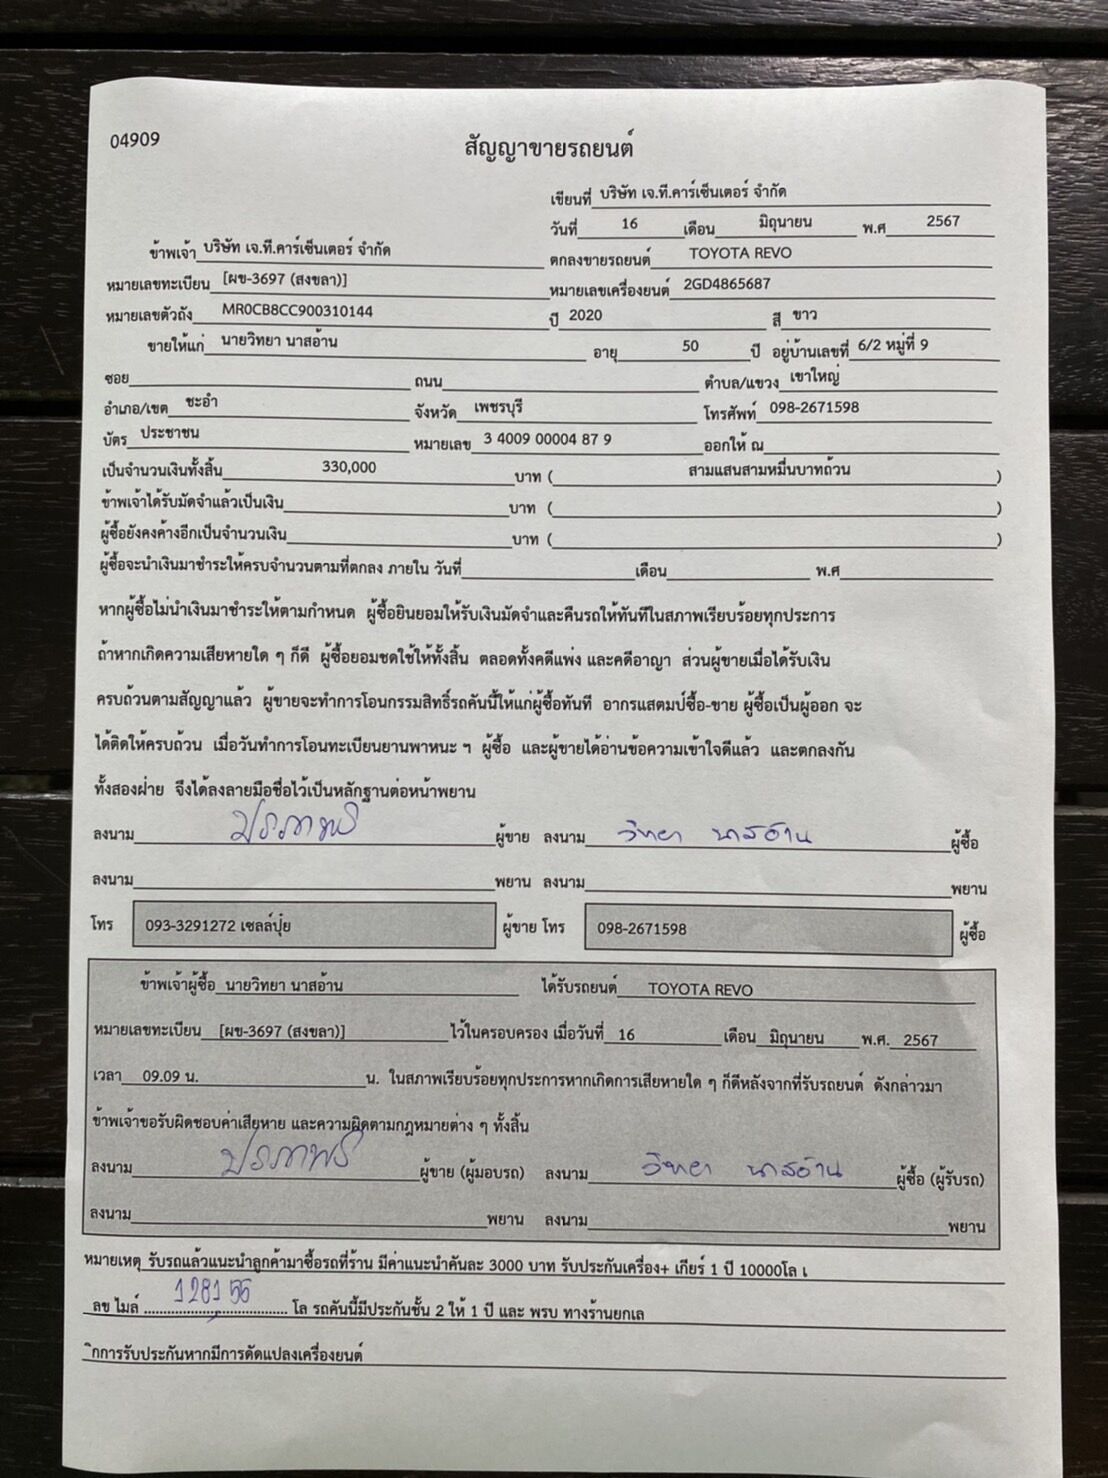 04909
สัญญาขายรถยนต์
เขียนที่ บริษัท เจ.ที.คาร์เซ็นเตอร์ จำกัด
วันที่ 16 เดือน มิถุนายน พ.ศ 2567
ข้าพเจ้า บริษัท เจ.ที.คาร์เซ็นเตอร์ จำกัด ตกลงขายรถยนต์ TOYOTA REVO
หมายเลขทะเบียน [ผข-3697 (สงขลา)] หมายเลขเครื่องยนต์ 2GD4865687
หมายเลขตัวถัง MR0CB8CC900310144 ปี 2020 สี ขาว
ขายให้แก่ นายวิทยา นาสอ้าน อายุ 50 ปี อยู่บ้านเลขที่ 6/2 หมู่ที่ 9
ซอย ถนน ตำบล/แขวง เขาใหญ่
อำเภอ/เขต ชะอำ จังหวัด เพชรบุรี โทรศัพท์ 098-2671598
บัตร ประชาชน หมายเลข 3 4009 00004 87 9 ออกให้ ณ
เป็นจำนวนเงินทั้งสิ้น 330,000 บาท ( สามแสนสามหมื่นบาทถ้วน )
ข้าพเจ้าได้รับมัดจำแล้วเป็นเงิน บาท ( )
ผู้ซื้อยังคงค้างอีกเป็นจำนวนเงิน บาท ( )
ผู้ซื้อจะนำเงินมาชำระให้ครบจำนวนตามที่ตกลง ภายใน วันที่ เดือน พ.ศ
หากผู้ซื้อไม่นำเงินมาชำระให้ตามกำหนด ผู้ซื้อยินยอมให้รับเงินมัดจำและคืนรถให้ทันทีในสภาพเรียบร้อยทุกประการ
ถ้าหากเกิดความเสียหายใด ๆ ก็ดี ผู้ซื้อยอมชดใช้ให้ทั้งสิ้น ตลอดทั้งคดีแพ่ง และคดีอาญา ส่วนผู้ขายเมื่อได้รับเงิน
ครบถ้วนตามสัญญาแล้ว ผู้ขายจะทำการโอนกรรมสิทธิ์รถคันนี้ให้แก่ผู้ซื้อทันที อากรแสตมป์ซื้อ-ขาย ผู้ซื้อเป็นผู้ออก จะ
ได้ติดให้ครบถ้วน เมื่อวันทำการโอนทะเบียนยานพาหนะ ฯ ผู้ซื้อ และผู้ขายได้อ่านข้อความเข้าใจดีแล้ว และตกลงกัน
ทั้งสองฝ่าย จึงได้ลงลายมือชื่อไว้เป็นหลักฐานต่อหน้าพยาน
ลงนาม ผู้ขาย ลงนาม วิทยา นาสอ้าน ผู้ซื้อ
ลงนาม พยาน ลงนาม พยาน
โทร 093-3291272 เซลล์ปุ๋ย ผู้ขาย โทร 098-2671598 ผู้ซื้อ
ข้าพเจ้าผู้ซื้อ นายวิทยา นาสอ้าน ได้รับรถยนต์ TOYOTA REVO
หมายเลขทะเบียน [ผข-3697 (สงขลา)] ไว้ในครอบครอง เมื่อวันที่ 16 เดือน มิถุนายน พ.ศ. 2567
เวลา 09.09 น. น. ในสภาพเรียบร้อยทุกประการหากเกิดการเสียหายใด ๆ ก็ดีหลังจากที่รับรถยนต์ ดังกล่าวมา
ข้าพเจ้าขอรับผิดชอบค่าเสียหาย และความผิดตามกฎหมายต่าง ๆ ทั้งสิ้น
ลงนาม ผู้ขาย (ผู้มอบรถ) ลงนาม วิทยา นาสอ้าน ผู้ซื้อ (ผู้รับรถ)
ลงนาม พยาน ลงนาม พยาน
หมายเหตุ รับรถแล้วแนะนำลูกค้ามาซื้อรถที่ร้าน มีค่าแนะนำคันละ 3000 บาท รับประกันเครื่อง+ เกียร์ 1 ปี 10000โล เ
ลข ไมล์ 128,155 โล รถคันนี้มีประกันชั้น 2 ให้ 1 ปี และ พรบ ทางร้านยกเล
ิกการรับประกันหากมีการดัดแปลงเครื่องยนต์